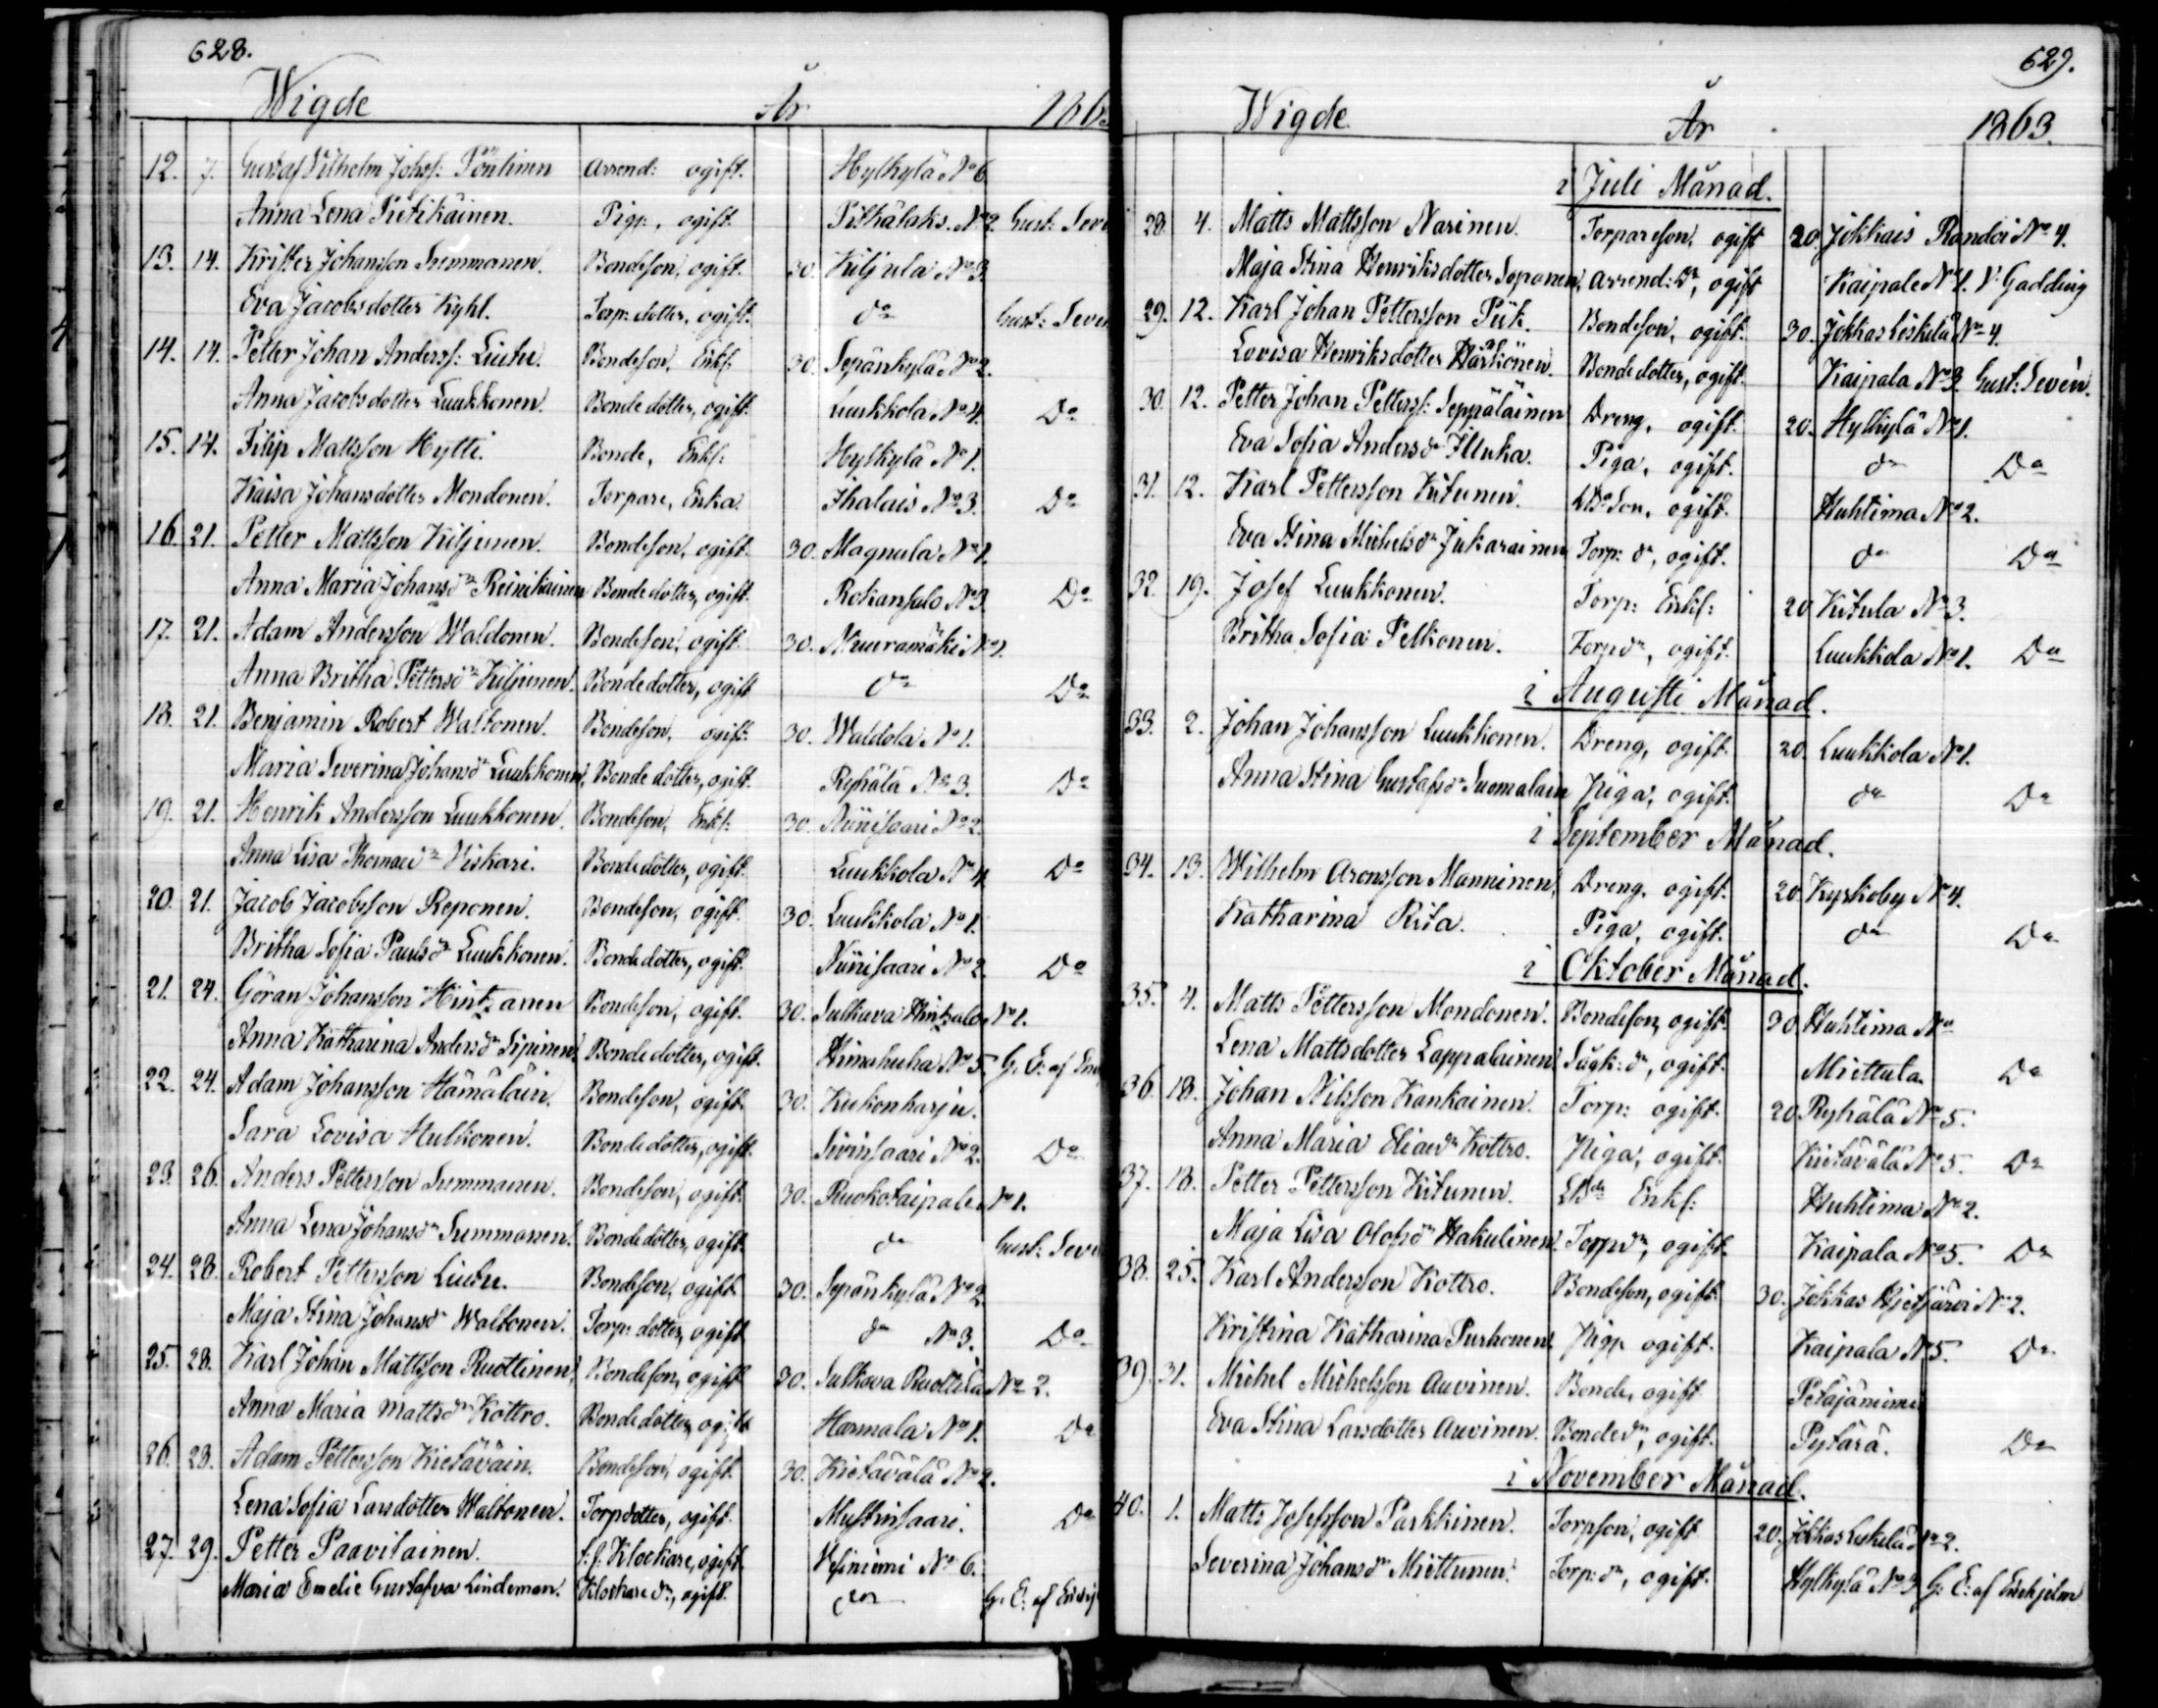 628.
Wigde År 186
12. 7. Gustaf Vilhelm Johsf: Pöntinen Arrend: ogift. Hylkylä No 6
Anna Lena Pietikäinen. Pig:, ogift. Pitkälaks. No 2. Gust: Seve
13. 14. Krister Johansson Summanen. Bondeson, ogift. 30. Kiljula No 3.
Eva Jacobsdotter Kyhl. Torp: dotter, ogift. do Gust: Seve
14. 14. Petter Johan Anderss: Liutu. Bondeson, Enkl: 30. Sepänkylä No 2.
Anna Jacobsdotter Luukkonen. Bondedotter, ogift. Luukkola No 4. Do
15. 14. Filip Mattsson Hytti. Bonde, Enkl: Hylkylä No 1.
Kaisa Johansdotter Mondonen. Torpare, Enka. Ihalais No 3. Do
16. 21. Petter Mattsson Kiljunen. Bondeson, ogift. 30. Magnula No 1.
Anna Maria Johansdr Reinikainen Bondedotter, ogift. Rokansalo No 3. Do
17. 21. Adam Andersson Waldonen. Bondeson, ogift. 30. No 1.
Anna Britha Pettersdr Kiljunen. Bondedotter, ogift do Do
18. 21. Benjamin Robert Waltonen. Bondeson, ogift. 30. Waldola No 1.
Maria Severina Johansdr Luukkonen, Bondedotter, ogift. Ryhälä No 3. Do
19. 21. Henrik Andersson Luukkonen. Bondeson, Enkl: 30. Niinisaari No 2.
Anna Lisa Thomaedr Viskari. Bondedotter, ogift. Luukkola No 4 Do
20. 21. Jacob Jacobsson Reponen. Bondeson, ogift. 30. Luukkola No 1.
Britha Sofia Paulsdr Luukkonen. Bondedotter, ogift. Niinisaari No 2. Do
21. 24. Göran Johansson Hintzanen Bondeson, ogift. 30. Sulkava Hintzala No 1.
Anna Katharina Andersdr Sipinen. Bondedotter, ogift. Himahuha No 5. G. E: af En
22. 24. Adam Johansson Hämäläin. Bondeson, ogift. 30. Kukonharju.
Sara Lovisa Hulkonen. Bondedotter, ogift. Sivinsaari No 2. Do
23. 26. Anders Pettersson Summanen. Bondeson, ogift. 30. Ruokotaipale No 1.
Anna Lena Johansdr Summanen. Bondedotter, ogift. do Gust: Seve
24. 28. Robert Pettersson Liutu. Bondeson, ogift 30. Sepänkylä No 2
Maja Stina Johansdr Waltonen. Torp: dotter, ogift do No 3. Do
25. 28. Karl Johan Mattsson Ruottinen, Bondeson, ogift 30. Sulkava Ruottila No 2.
Anna Maria Mattsdr Kottro. Bondedotter, ogift Harmala No 1. Do
26. 28. Adam Pettersson Kietäväin. Bondeson, ogift. 30. Kietävälä No 2.
Lena Sofia Larsdotter Waltonen. Torpdotter, ogift. Mustinsaari. Do
27. 29. Petter Paavilainen. Klockare, ogift. Vesiniemi No 6.
Maria Emelie Gustafva Lindeman. Klockaredr, ogift. do G. E: af Enehj
629.
Wigde År 1863.
i Juli Månad.
28. 4. Matts Mattsson Narinen. Torpareson, ogift 20. Jokkais Randoi No 4.
Maja Stina Henriksdotter Soponen, Arrend: dr, ogift Kaipale No 1. V. Gadding
29. 12. Karl Johan Pettersson Piik. Bondeson, ogift. 30. Jokkas Löskilä No 4.
Lovisa Henriksdotter Härkönen. Bondedotter, ogift. Kaipala No 3. Gust: Sevén.
30. 12. Petter Johan Petterss: Seppäläinen Dreng, ogift. 20. Hylkylä No 1.
Eva Sofia Andersdr Illuka. Piga, ogift. do Do
31. 12. Karl Pettersson Kitunen. Son, ogift. Huhtima No 2.
Eva Stina Michelsdr Jukarainen Torp: dr, ogift. do Do
32. 19. Josef Luukkonen. Torp: Enkl: 20 Kitula No 3.
Britha Sofia Pelkonen. Torpdr, ogift. Luukkola No 1. Do
i Augusti Månad.
33. 2. Johan Johansson Luukkonen. Dreng, ogift. 20. Luukkola No 1.
Anna Stina Gustafsdr Suomalain Piga, ogift. do Do
i September Månad.
34. 13. Wilhelm Aronsson Manninen, Dreng. ogift. 20. Kyrkoby No 4.
Katharina Rita. Piga, ogift. do Do
i Oktober Månad.
35. 4. Matts Pettersson Mondonen. Bondeson, ogift. 30 Huhtima No
Lena Mattsdotter Lappalainen. ogift. Miettula. Do
36. 18. Johan Nilsson Kankainen. Torp: ogift. 20 Ryhälä No 5.
Anna Maria Eliaedr Kottro. Piga, ogift. Kietävälä No 5. Do
37. 18. Petter Pettersson Kitunen. Enkl: Huhtima No 2.
Maja Lisa Olofsdr Hakulinen. Torpdr, ogift. Kaipala No 5. Do
38. 25. Karl Andersson Kottro. Bondeson, ogift. 30. Jokkas No 2.
Kristina Katharina Purhonen. Pig: ogift. Kaipala No 5. Do
39. 31. Michel Michelsson Auvinen. Bonde, ogift Petäjäniemi
Eva Stina Larsdotter Auvinen. Bondedr, ogift. Pytärä. Do
i November Månad.
40. 1. Matts Josefsson Parkkinen. Torpson, ogift 20. Jokkas No 2.
Severina Johansdr Miettunen. Torp: dr, ogift. Hylkylä No 3 G: E: af Enehjelm